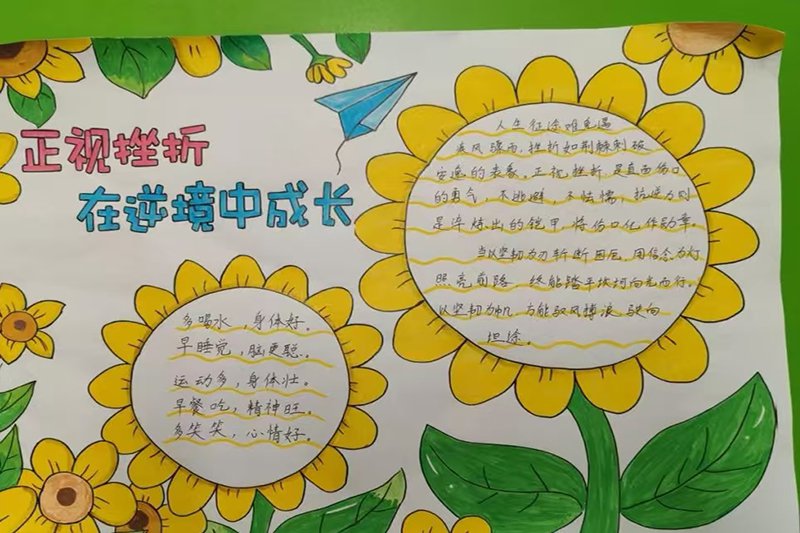 正视挫折
在逆境中成长
人生征途难免遇
疾风骤雨,挫折如荆棘刺破
安逸的表象。正视挫折,是直面伤口
的勇气,不逃避,不怯懦,抗逆力则
是淬炼出的铠甲,将伤口化作勋章。
当以坚韧为刃斩断困厄,用信念为灯
照亮前路,终能踏平坎坷向光而行,
以坚韧为帆,方能驭风搏浪,驶向
坦途。
多喝水,身体好。
早睡觉,脑更聪。
运动多,身体壮。
早餐吃,精神旺。
多笑笑,心情好。